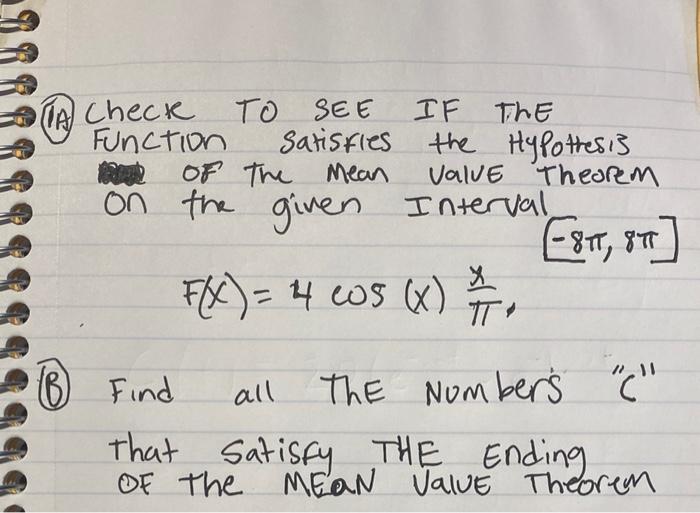 1A Check TO SEE IF ThE
Function Satisfies the Hypothesis
OF The Mean ValuE Theorem
on the given Interval
[-8π, 8π]
F(X) = 4 cos (x) x/π,
B Find all ThE Numbers "C"
that Satisfy THE Ending
OF the MEaN ValuE Theorem